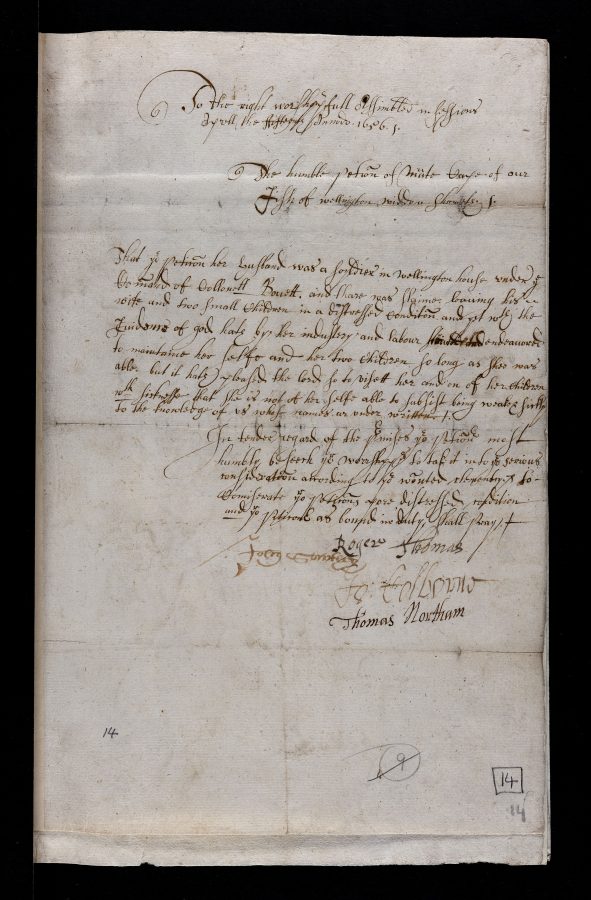 To the right worshipfull Assimbled in Sessions
Aprill the Anno 1656
The humble petion of of our
of wellington widdow
That yor petitionr her husband was a soldier in wellington house under ye
Comand of Collonell Bovett, and thare was slaine leaving his
wife and two small Children in a distressed Condition and yet with the
of god hath by her industry and labour endeavored
to maintaine her selfe and her two Children so long as shee was
able. but it hath pleased the lord so to visett her and on of her Children
with sicknesse that she is not of her selfe able to subsist being weake &
to the knowledge of us whose names ar under written
In tender regard of the p'mises yor petitionr most
humbly beseech yor worshipps to take it into yor serious
consideration according to yor wonted to
Comiserate yor petitionrs pore distressed condition
and yor petitionr as bound in duty shall pray
Roger Thomas
John
Jo:
Thomas Northum
14
9
14
14